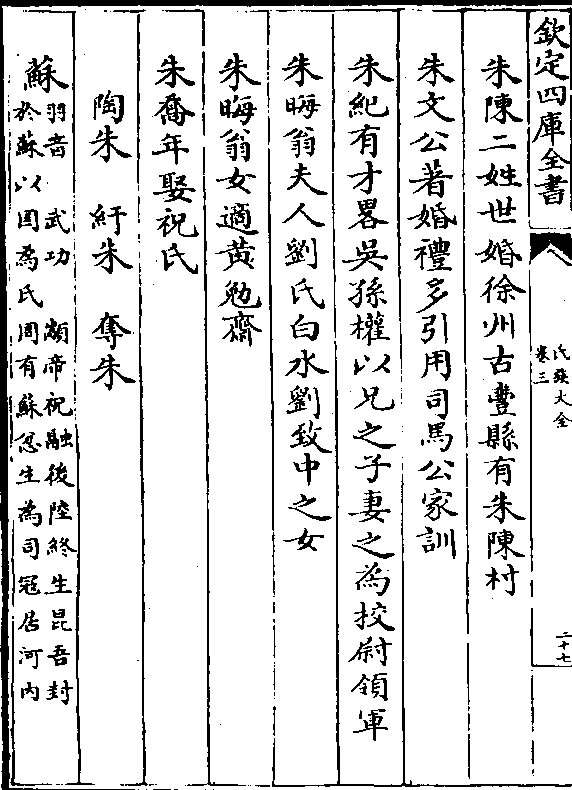 欽定四庫全書
氏族大全
卷三
二十七
朱陳二姓世婚徐州古豐縣有朱陳村
朱文公著婚禮多引用司馬公家訓
朱紀有才畧吳孫權以兄之子妻之為挍尉領軍
朱晦翁夫人劉氏白水劉致中之女
朱晦翁女適黃勉齋
朱喬年娶祝氏
陶朱 紆朱 奪朱
蘇
羽音 武功 顓帝祝融後陸終生昆吾封
於蘇以囯為氏周有蘇忿生為司寇居河内